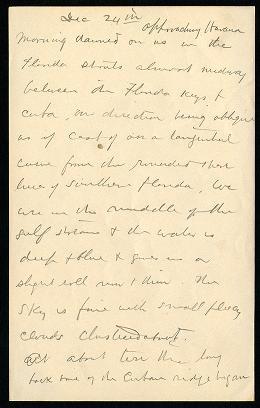 Dec 24th
approaching Havana
Morning dawned on us in the
Florida straits almost midway
between the Florida Keys &
Cuba, our direction being oblique
as if cast off on a tangential
curve from the rounded shore
line of southern Florida. We
are in the middle of the
gulf stream & the water is
deep & blue & gives us a
slight roll now & then. The
sky is fine with small fleecy
clouds clustered about.
At about ten the long
back line of the Cuban ridge began